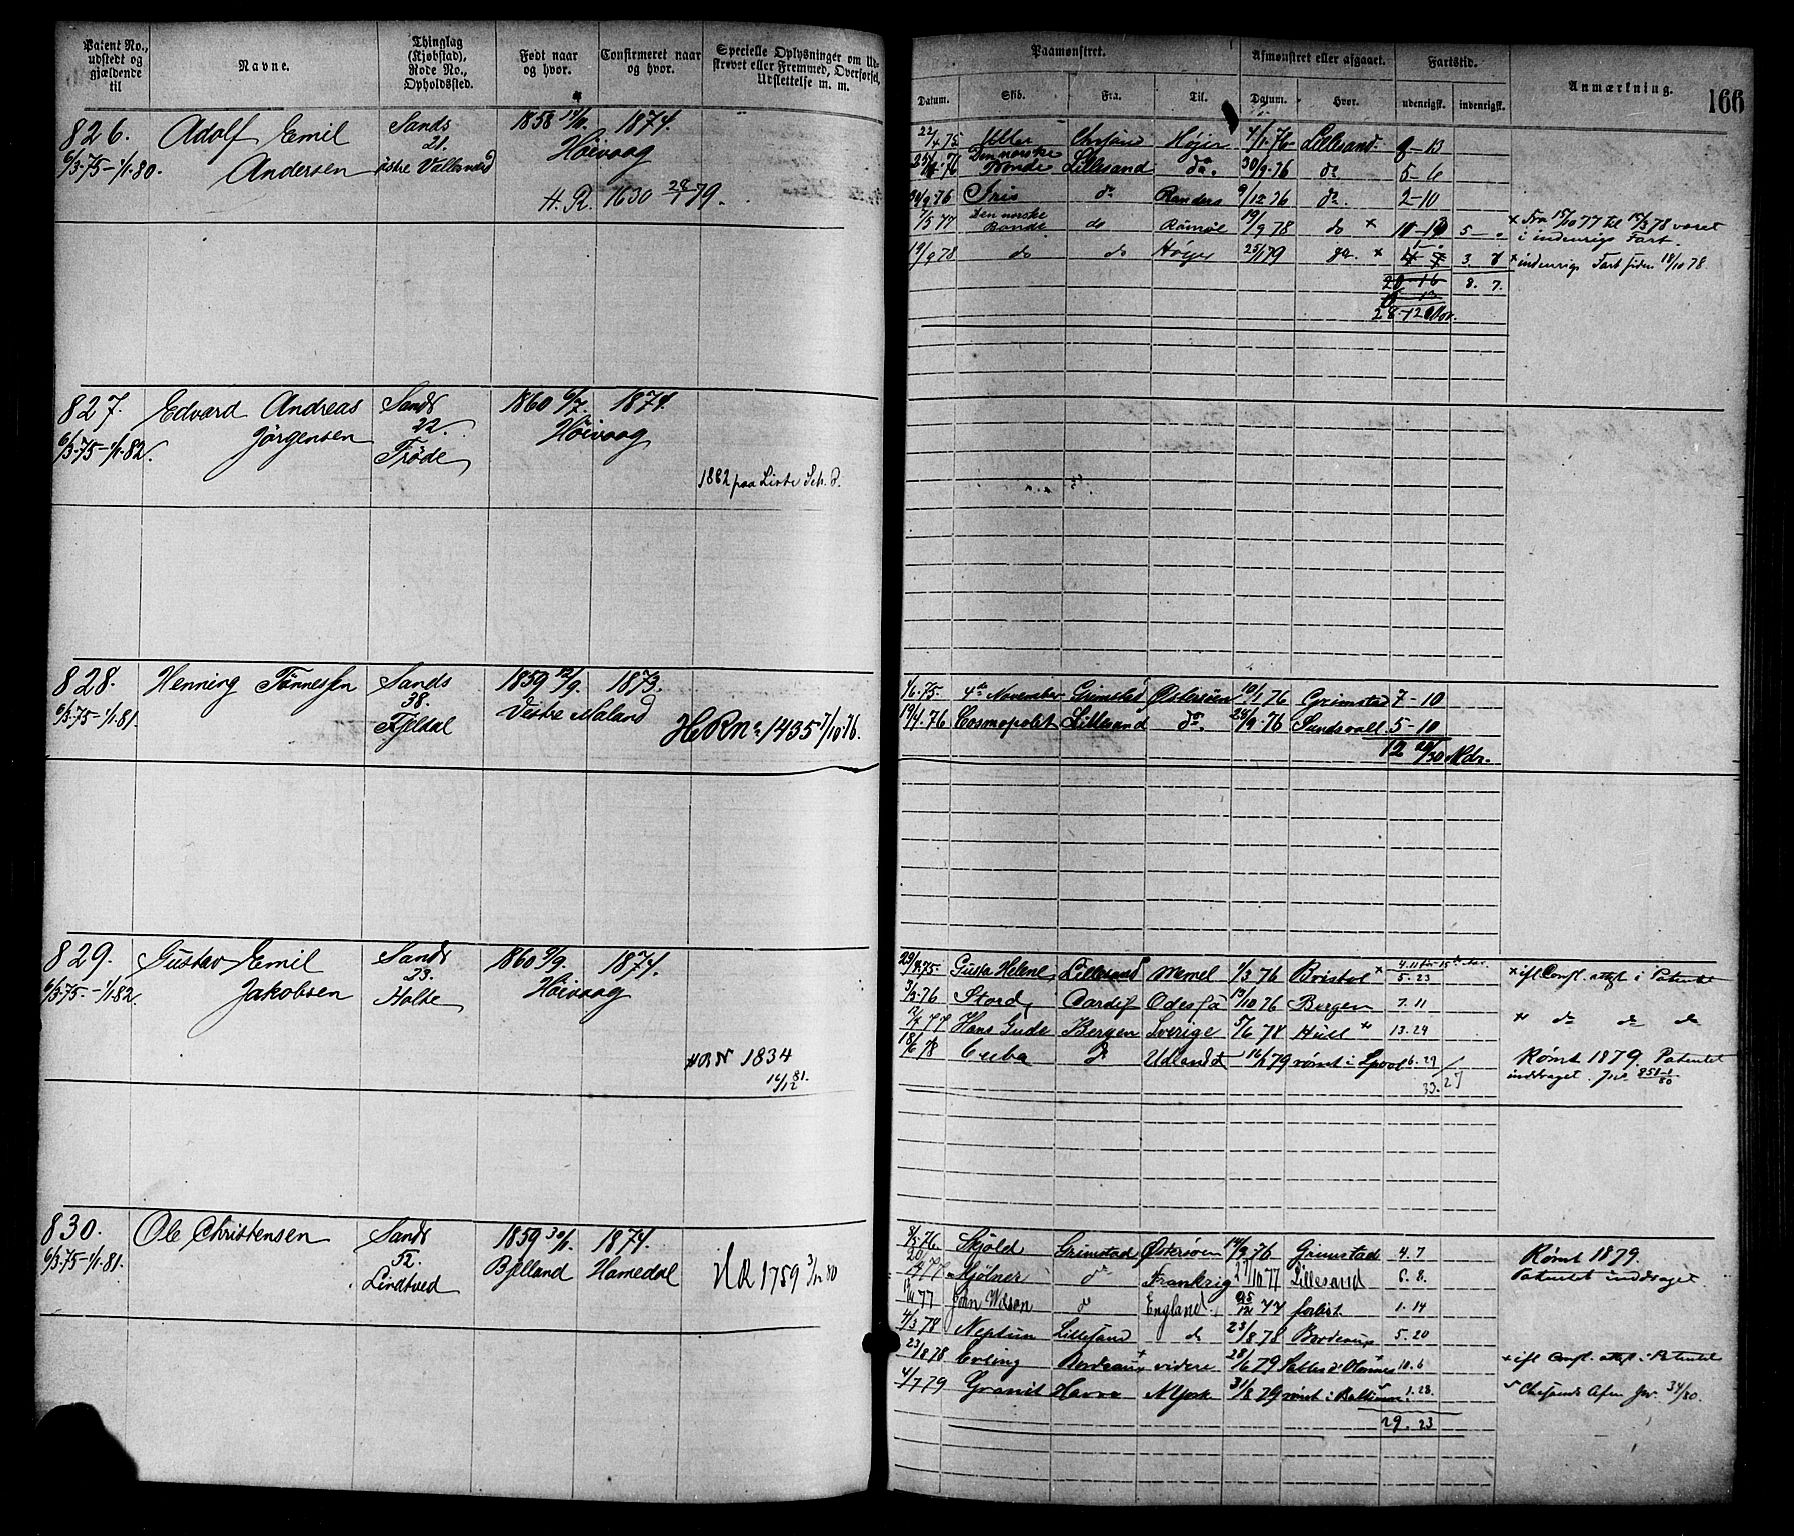 Patent No., udstedt og gjældende til
Navne.
Thinglag (Kjøbstad), Rode No., Opholdssted.
Født naar og hvor.
Confirmeret naar og hvor.
Specielle Oplysninger om Ud-
skrevet eller Fremmed, Overførsel,
Udslettelse m. m.
Paamønstret.
Afmønstret eller afgaaet.
Fartstid.
Anmærkning.
166
Datum.
Skib.
Fra.
Til.
Datum.
Hvor.
udenrigsk.
indenrigsk.
826. Adolf Emil Sands 1858 1874.
21. Høivaag
6/3-75-1/1-80. Andersen østre Vallesværd
H. R. 1630 28/1 79.
22/4 75 Uller Chrsand Højer 4/1-76 Lillesand 8-13
76 Den norske Bonde Lillesand do. 30/9-76 do 5-6
9 76 Iris do Randers 9/12 76 do. 2-10
7/3 77 Den norske Bonde do 19/9 78 do x 5-"
x Fra 15/10 77 til 15/3 78 været
i indenrigs Fart.
19/9 78 do do Höjer 25/1 79 x 3. 8
x indenrigs Fart siden 18/10 78.
20-16 8. 7.
28-12
827. Edvard Andreas Sands 1860 6/7. 1874.
22. Høivaag
6/3-75-1/1-82. Jørgensen Trøde
1882 paa Liste
828. Henning Tønnessen Sands 1859 12/9. 1873.
38. Vestre Moland
6/3-75-1/1-81. Fjeldal HRNo 1435 7/10-76.
1/6-75 4de November Grimstad Østersöen 10/1 76 Grimstad 7-10
19/4-76 Cosmopolit Lillesand do. 28/9-76 Sundsvall 5-10
12 20/30 Mdr.
829. Gustav Emil Sands 1860 9/9. 1874.
23. Høivaag
6/3-75-1/1-82. Jakobsen Holte
HR No 1834
14/12 81.
75 Gusta Helene Lillesand Memel 1/3 76 Bristol x 5. 23
x ifl Confl. attest i Patentet
3/3-76 Stord Cardif Odessa 19/10 76 Bergen 7. 11
x do do do
77 Hans Gude Bergen Sverige 5/6 78 Hull x 13. 24
18/6 78 Cuba Udlandet 16/1 79 rømt i Lpool 6. 29
33. 27
Rømt 1879. Patentet
inddraget.
830. Ole Christensen Sands 1859 30/1. 1874.
52. Bjelland Homedal
6/3-75-1/1-81. Lindtved HR 1759 3/12 80
76 Skjöld Grimstad Østersöen 14/9 76 Grimstad 4. 7
Rømt 1879.
77 Mjölner do Frankrig 27/10 77 Lillesand 6. 8.
Patentet inddraget
77 John Wilson do England 25/12 77 forlist 1. 14
4/3 78 Neptun Lillesand do 23/8 78 Bordeaux 5. 20
23/8 78 Erling Bordeaux videre 28/6 79 Sables d'Olonnes 10. 6
x ifl Confl. attest i Patentet
4/7 79 Granit Havre N. York 31/8 79 rømt i Baltimore 1. 28.
29. 23